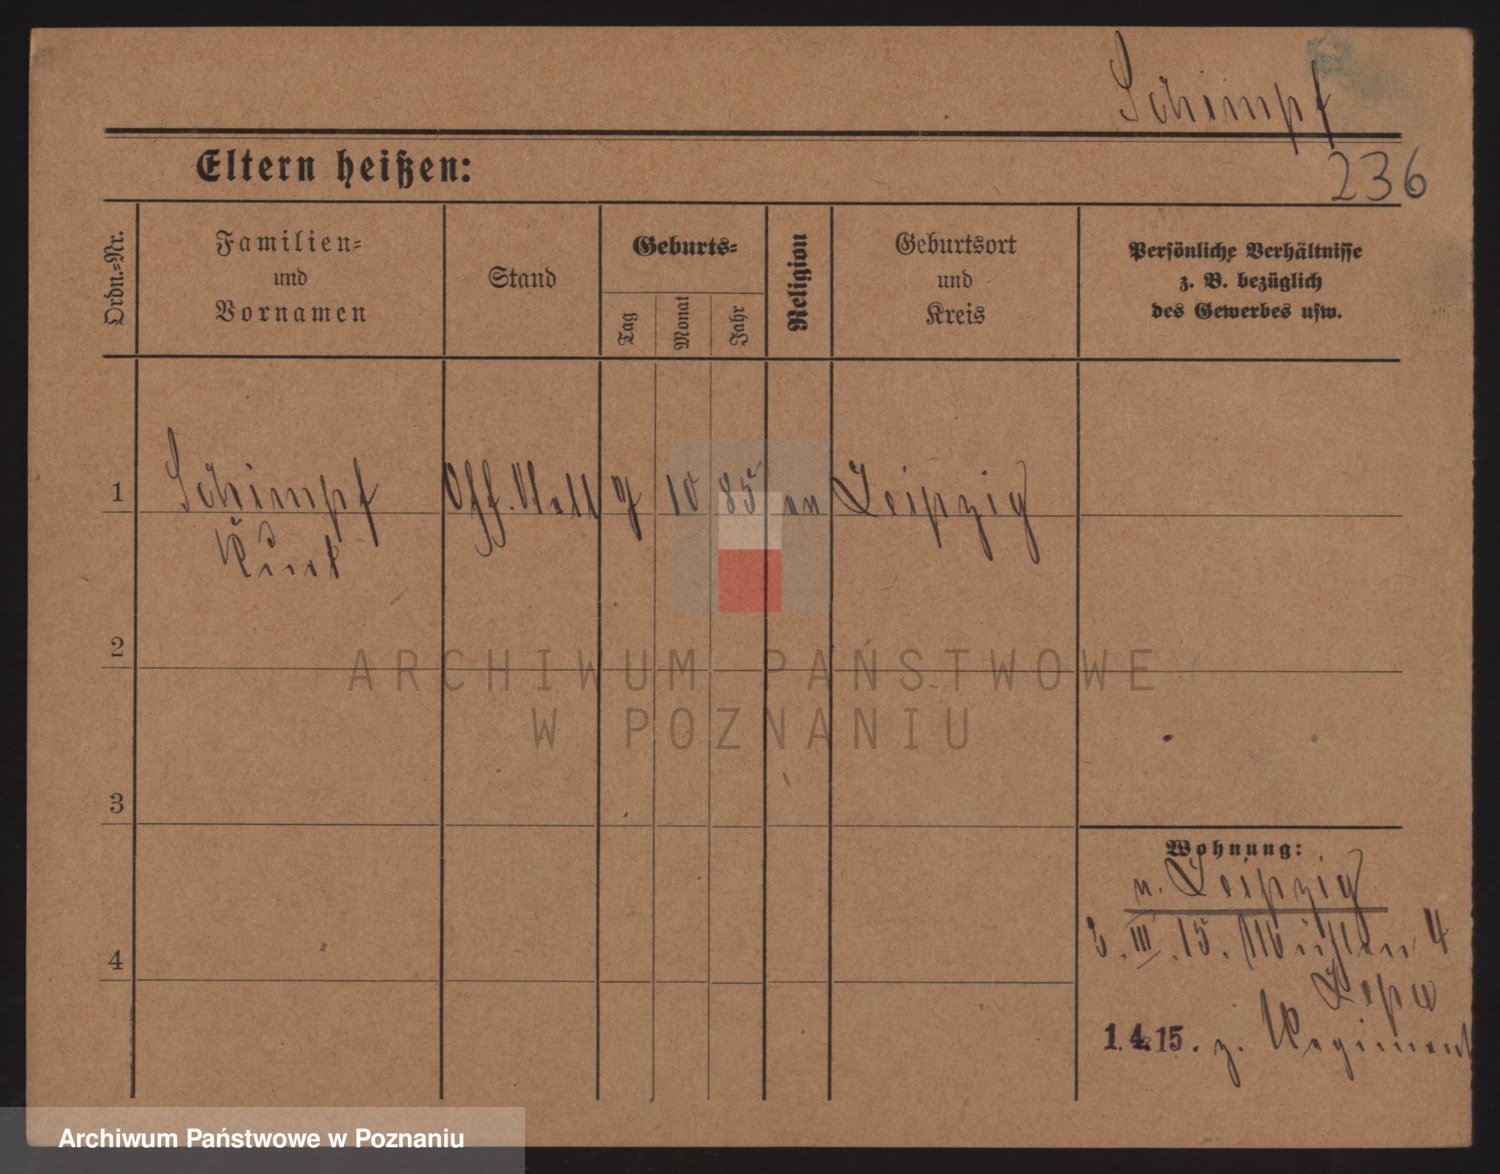 Schimpf
Eltern heißen:
236
Ordn.-Nr.
Familien-
und
Vornamen
Stand
Geburts-
Tag
Monat
Jahr
Religion
Geburtsort
und
Kreis
Persönliche Verhältnisse
z. B. bezüglich
des Gewerbes usw.
1
Schimpf
Kurt
Off.
10
85
Leipzig
2
3
4
ARCHIWUM PAŃSTWOWE
W POZNANIU
Wohnung:
n. Leipzig
III. 15. Mühlen 4
1. 4. 15. z. Regiment
Archiwum Państwowe w Poznaniu